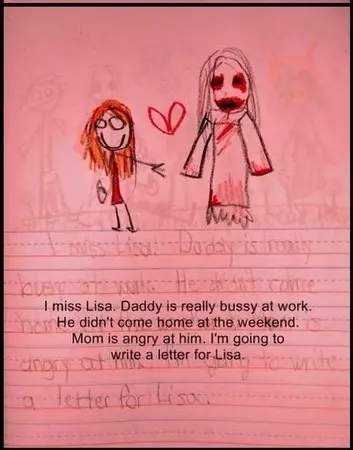 I miss Lisa. Daddy is really
at work. He didn't come
home
angry at him. I'm going to write
a letter for Lisa.
I miss Lisa. Daddy is really bussy at work.
He didn't come home at the weekend.
Mom is angry at him. I'm going to
write a letter for Lisa.